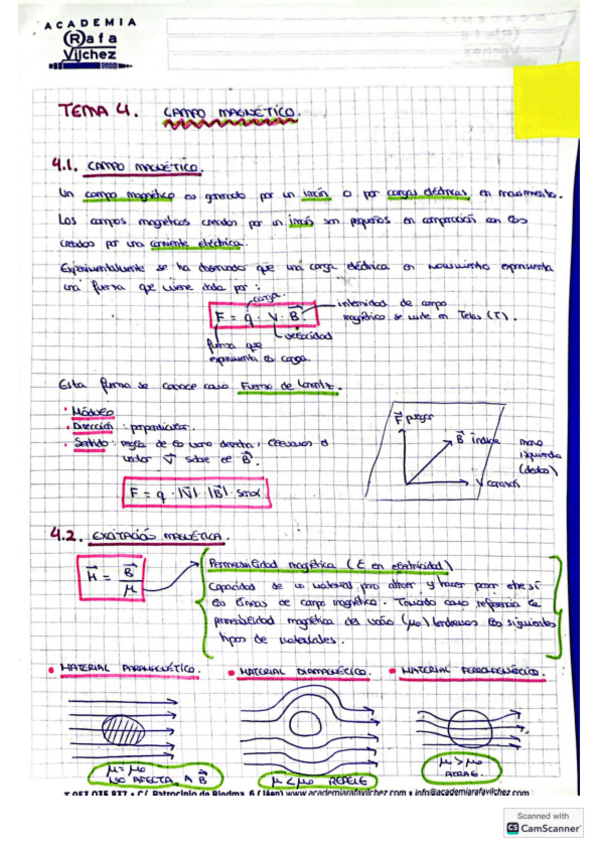 ACADEMIA
Rafa
Vílchez
TEMA 4. CAMPO MAGNÉTICO.
4.1. CAMPO MAGNÉTICO.
Un campo magnético es generado por un imán o por cargas eléctricas en movimiento.
Los campos magnéticos creados por un imán son pequeños en comparación con los
creados por una corriente eléctrica.
Experimentalmente se ha observado que una carga eléctrica en movimiento experimenta
una fuerza que viene dada por:
carga.
F = q · V · B⃗
intensidad de campo
magnético se mide en Teslas (T).
velocidad
fuerza que
experimenta la carga.
Esta fuerza se conoce como Fuerza de Lorentz.
• Módulo
• Dirección : perpendicular.
• Sentido : regla de la mano derecha, llevamos el
vector V⃗ sobre el B⃗.
F⃗ pulgar
B⃗ índice
V corazón
mano
izquierda
(dedos)
F = q · |V⃗| · |B⃗| · senα
4.2. EXCITACIÓN MAGNÉTICA.
H⃗ = B⃗/μ
Permeabilidad magnética (ε en electricidad)
Capacidad de un material para atraer y hacer pasar através
las líneas de campo magnético. Tomando como referencia la
permeabilidad magnética del vacío (μ₀) tendremos los siguientes
tipos de materiales.
• MATERIAL PARAMAGNÉTICO.
• MATERIAL DIAMAGNÉTICO.
• MATERIAL FERROMAGNÉTICO.
μ = μ₀
NO AFECTA A B⃗
μ < μ₀ REPELE
μ > μ₀
ATRAE.
C/ Patrocinio de Biedma, 6 (Jaén) www.academiarafavilchez.com • info@academiarafavilchez.com
Scanned with
CS CamScanner